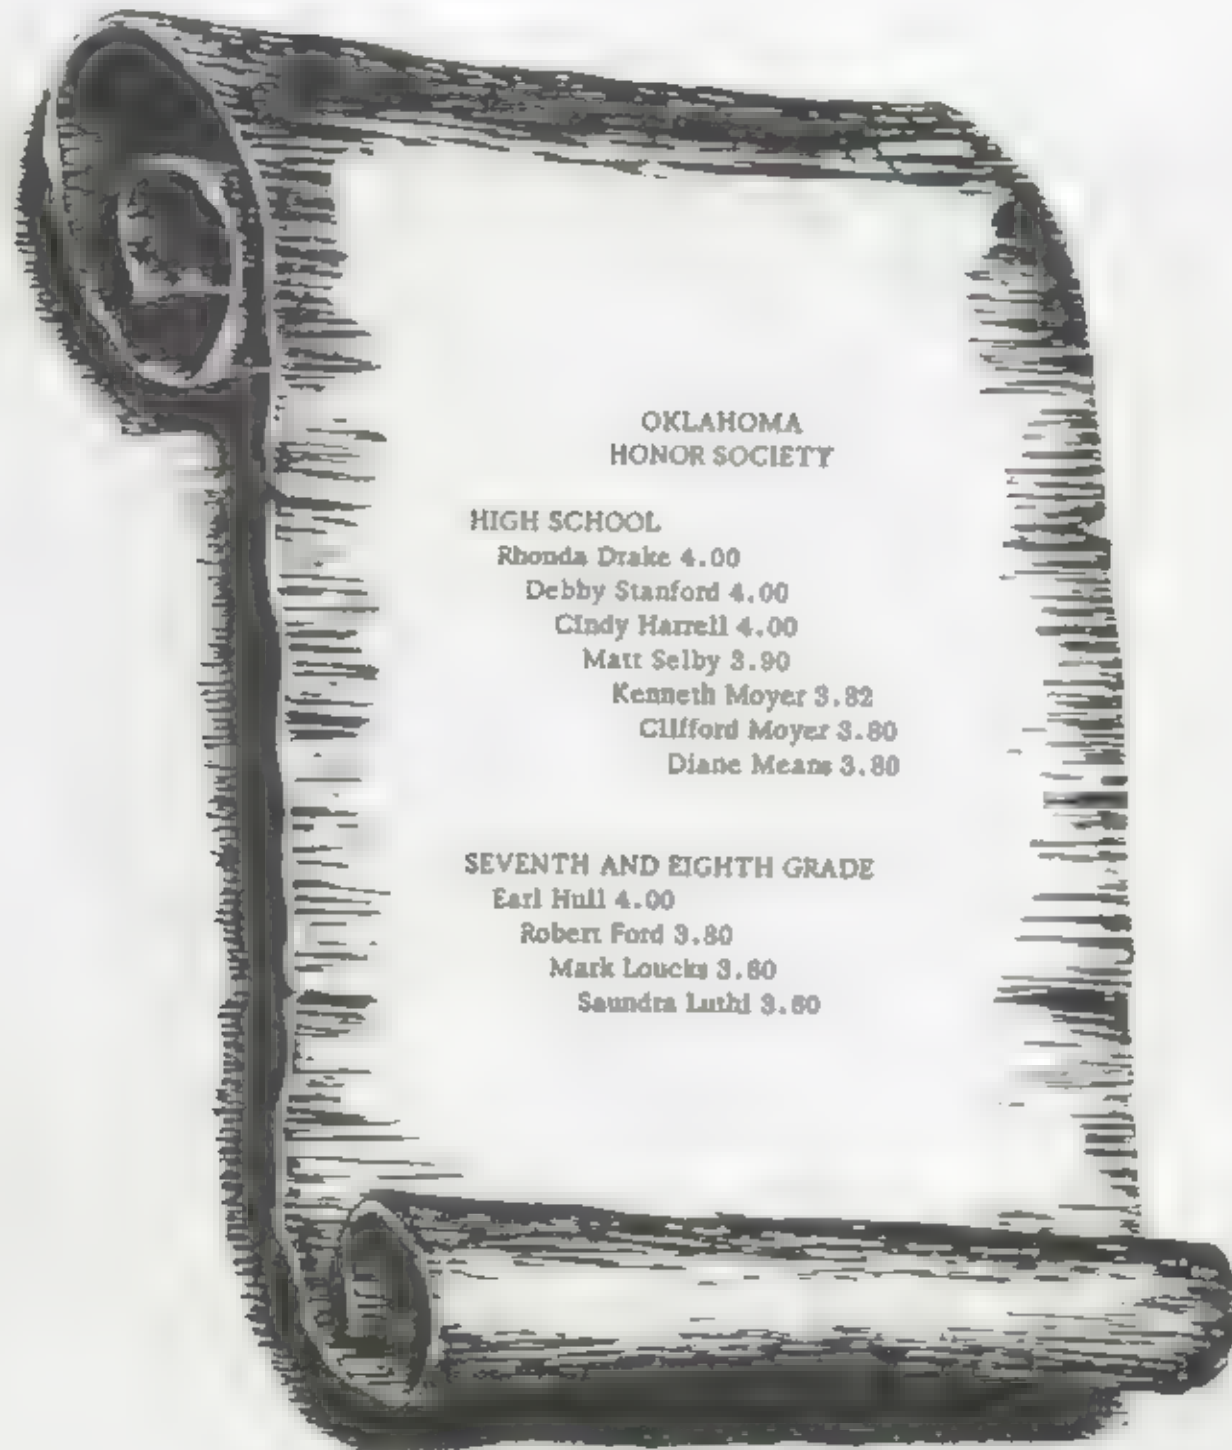 OKLAHOMA
HONOR SOCIETY
HIGH SCHOOL
Rhonda Drake 4.00
Debby Stanford 4.00
Cindy Harrell 4.00
Matt Selby 3.90
Kenneth Moyer 3.82
Clifford Moyer 3.80
Diane Means 3.80
SEVENTH AND EIGHTH GRADE
Earl Hull 4.00
Robert Ford 3.80
Mark Loucks
Saundra Luthi